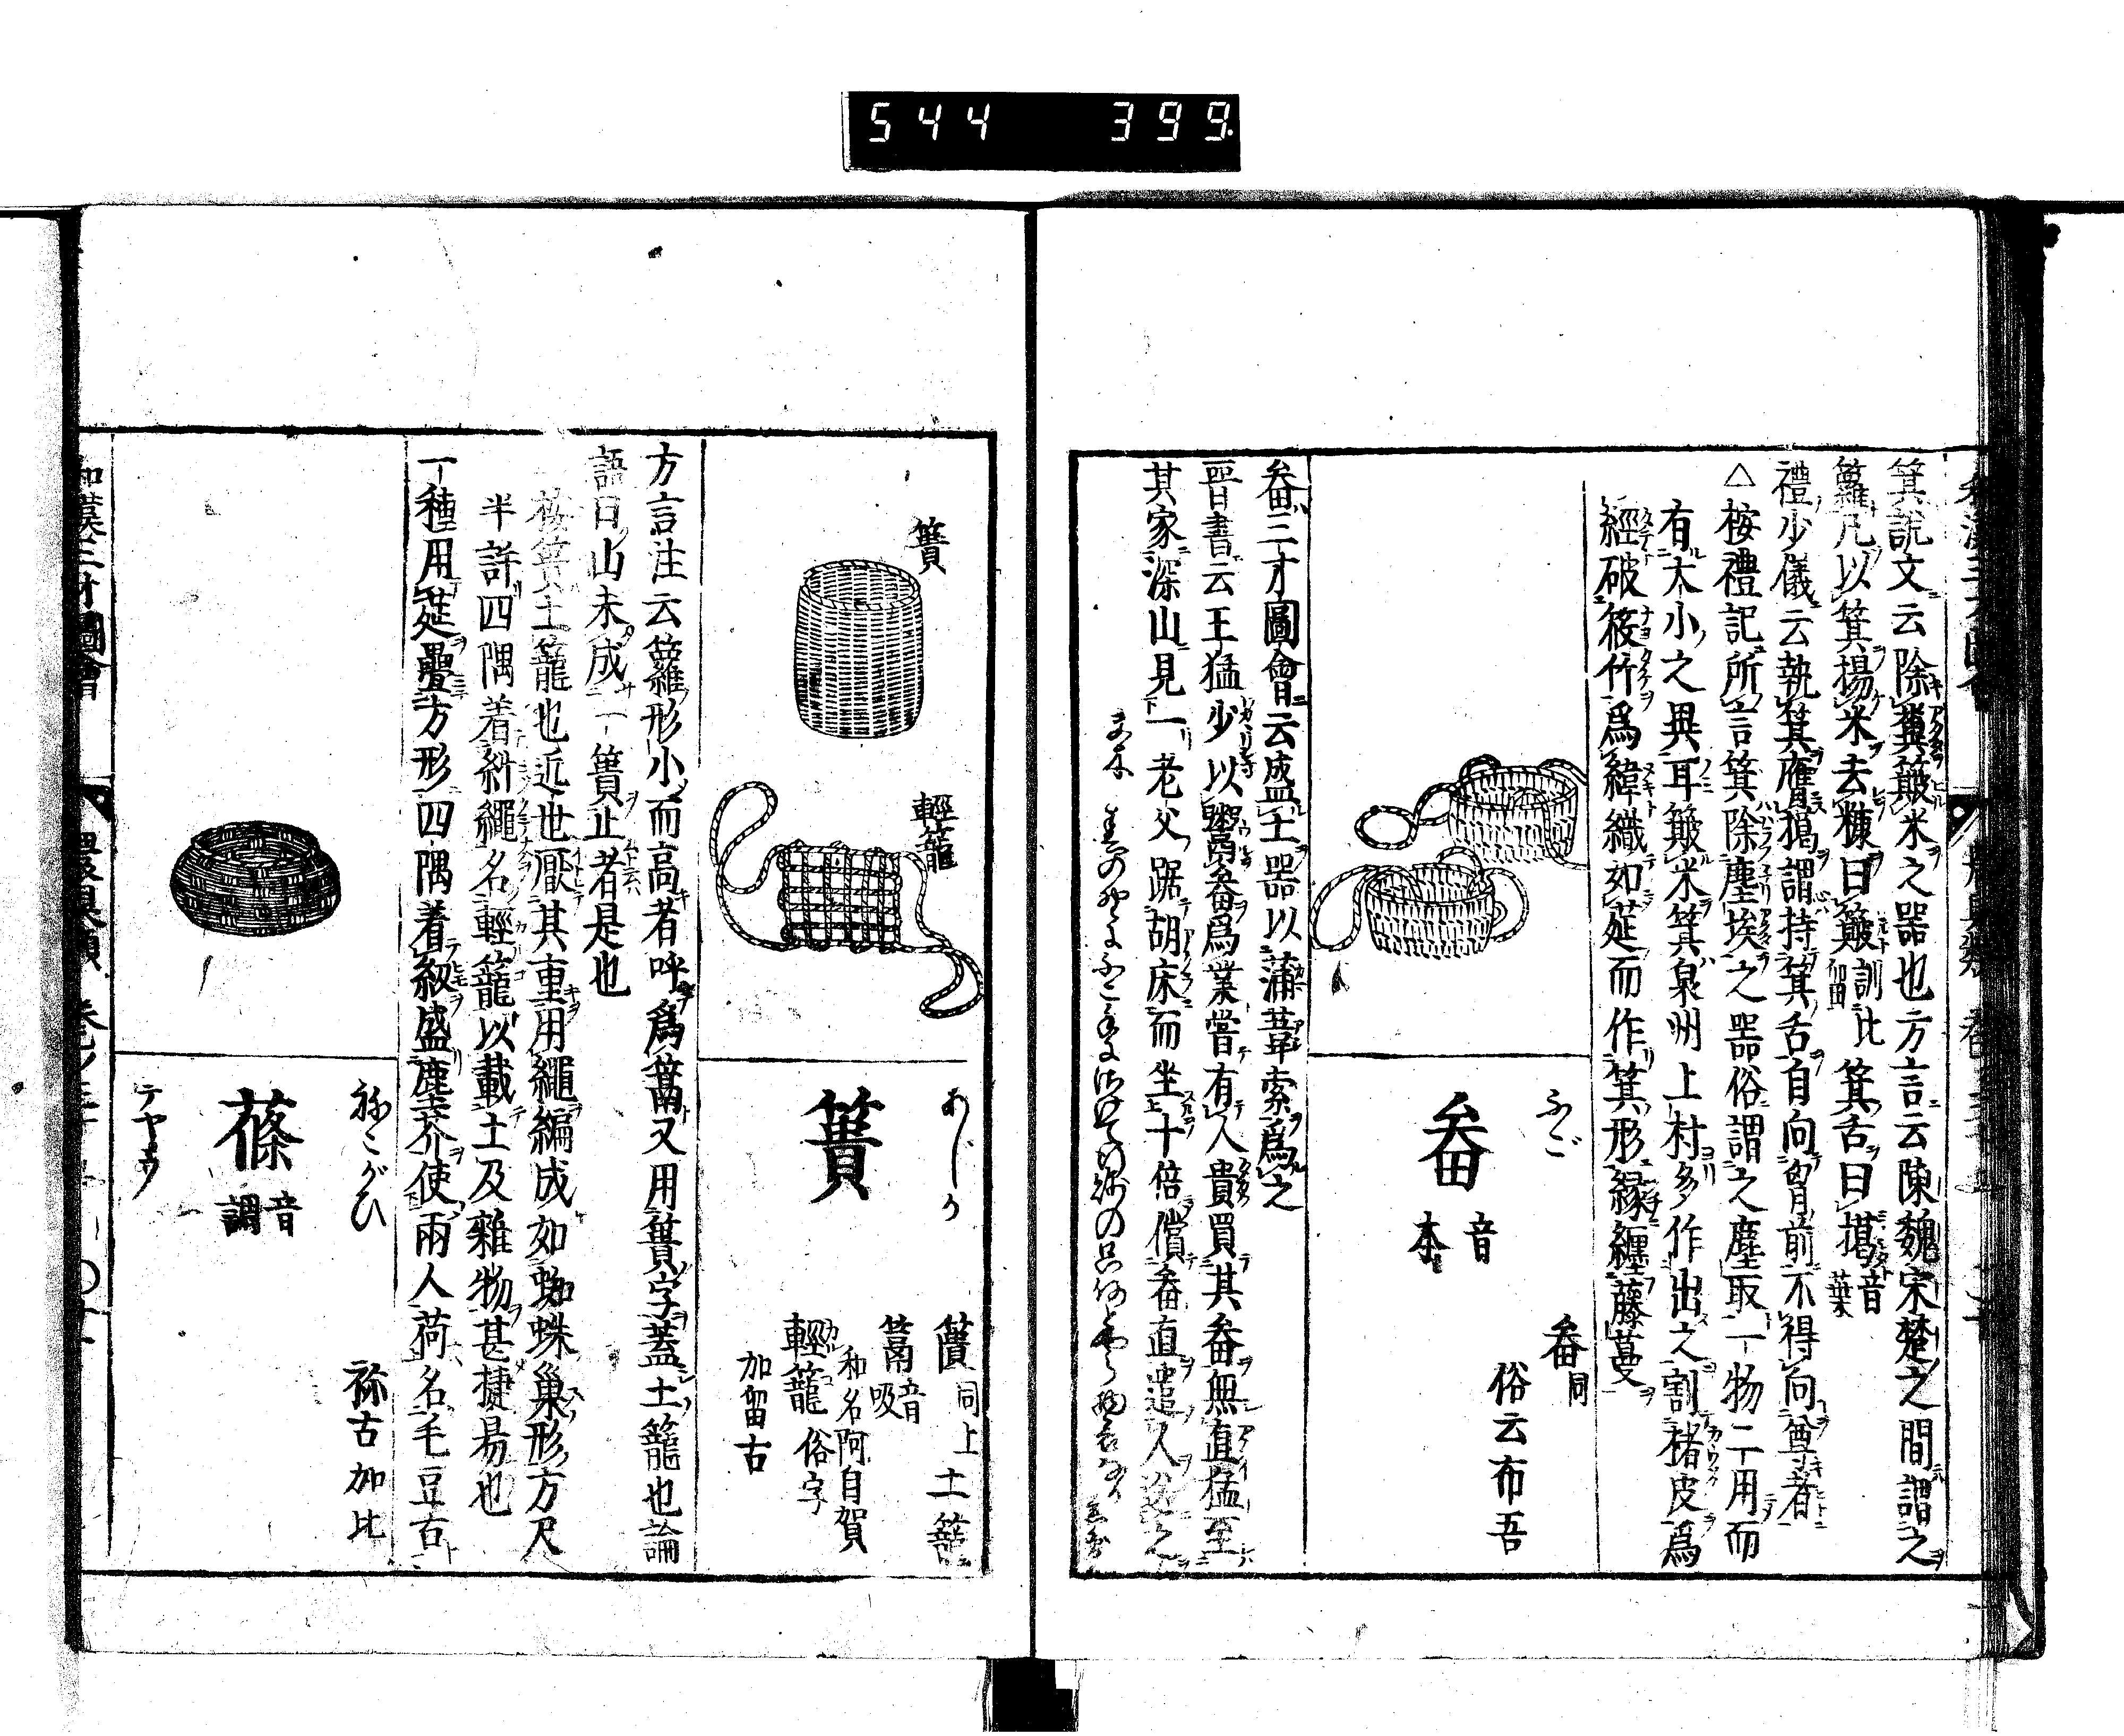 544 399
箕說文云除糞簸米之器也方言云陳魏宋楚之間謂之
籮凡以箕揚米去糠曰簸訓比留 箕舌曰擖音葉
禮少儀云執箕膺擖謂持箕舌自向胷前不得向尊者
△按禮記所言箕除塵埃之器俗謂之塵取一物二用而
有大小之異耳簸米箕泉州上村多作出之割楮皮爲
經破筱竹爲緯織如莚而作箕形緣纏藤蔓
ふご
畚
音本
畚同
俗云布吾
畚三才圖會云盛土器以蒲葦索爲之
晉書云王猛少以鬻畚爲業嘗有人貴買其畚無直猛至
其家深山見一老父踞胡床而坐十倍償畚直遣人送之
簣
輕籠
あじか
簣
同上 土籠
音吸
和名阿自賀
輕籠俗字
加留古
方言注云籮形小而高者呼爲䈰又用簣字蓋土籠也論
語曰山未成一簣止者是也
按簣土籠也近世厭其重用繩編成如蜘蛛巢形方尺
半許四隅着糾繩名輕籠以載土及雜物甚揵易也
一種用莚疊方形四隅着紉盛塵芥使兩人荷名毛豆古
ねこがひ
蓧
音調
テヤウ
祢古加比
和漢三才圖會